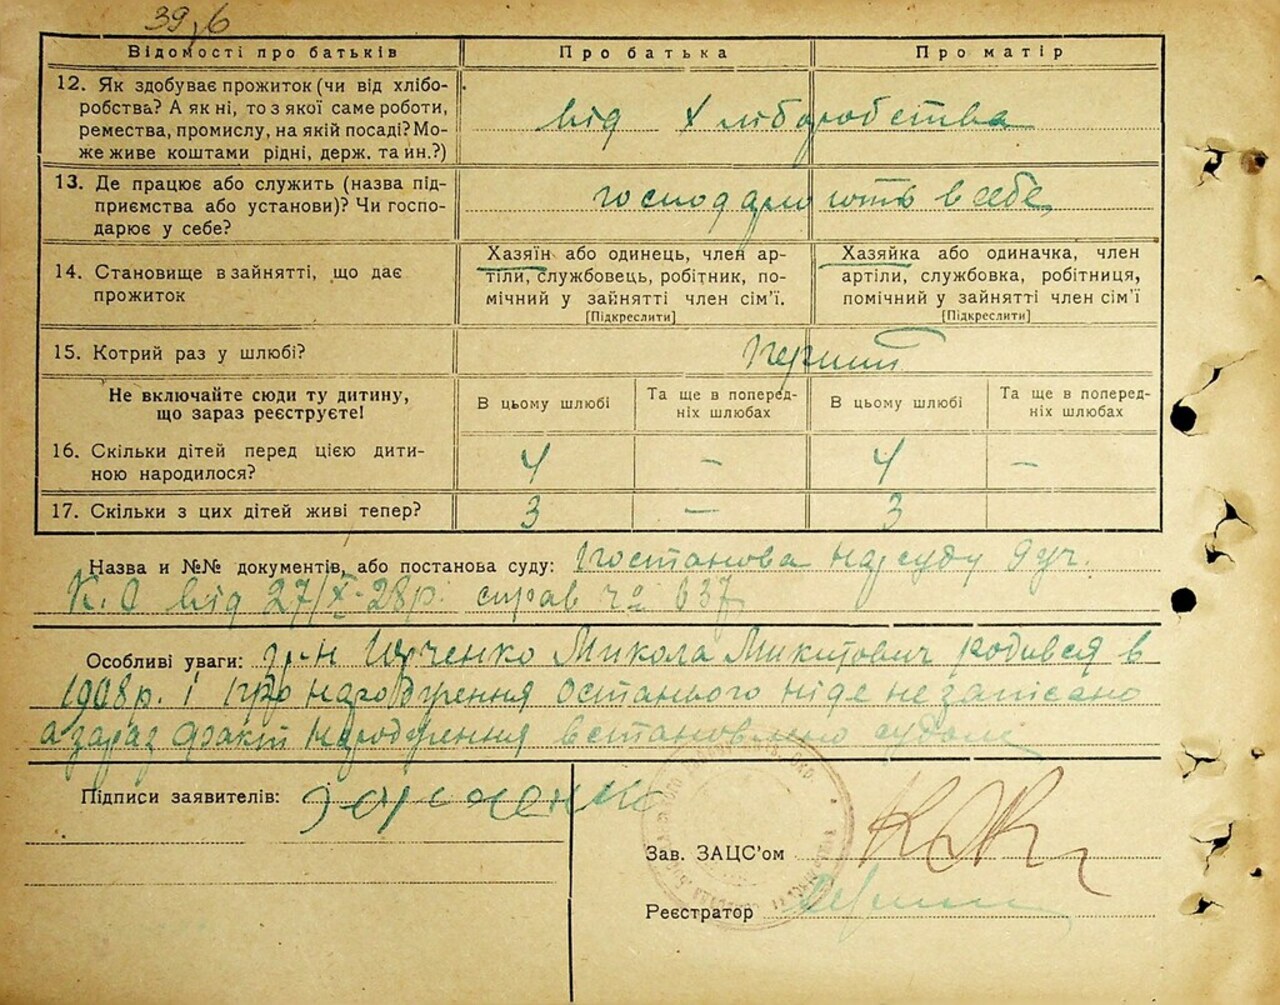 39, б
Відомості про батьків
Про батька
Про матір
12. Як здобуває прожиток (чи від хлібо-
робства? А як ні, то з якої саме роботи,
ремества, промислу, на якій посаді? Мо-
же живе коштами рідні, держ. та ин.?)
від хліборобства
13. Де працює або служить (назва під-
приємства або установи)? Чи госпо-
дарює у себе?
господарюють в себе
14. Становище в зайнятті, що дає
прожиток
Хазяїн або одинець, член ар-
тіли, службовець, робітник, по-
мічний у зайнятті член сім'ї.
[Підкреслити]
Хазяйка або одиначка, член
артіли, службовка, робітниця,
помічний у зайнятті член сім'ї
[Підкреслити]
15. Котрий раз у шлюбі?
перший
Не включайте сюди ту дитину,
що зараз реєструєте!
В цьому шлюбі
Та ще в поперед-
ніх шлюбах
В цьому шлюбі
Та ще в поперед-
ніх шлюбах
16. Скільки дітей перед цією дити-
ною народилося?
4 – 4 –
17. Скільки з цих дітей живі тепер?
3 – 3
Назва и №№ документів, або постанова суду: Постанова нарсуду 9 уч.
К.О від 27/X-28р. справ ч° 637
Особливі уваги: гр-н Микола Микитович родився в
1908р. і про народження останього ніде не запісано
а зараз факт народження встановлено судом
Підписи заявителів:
Зав. ЗАЦС'ом
Реєстратор